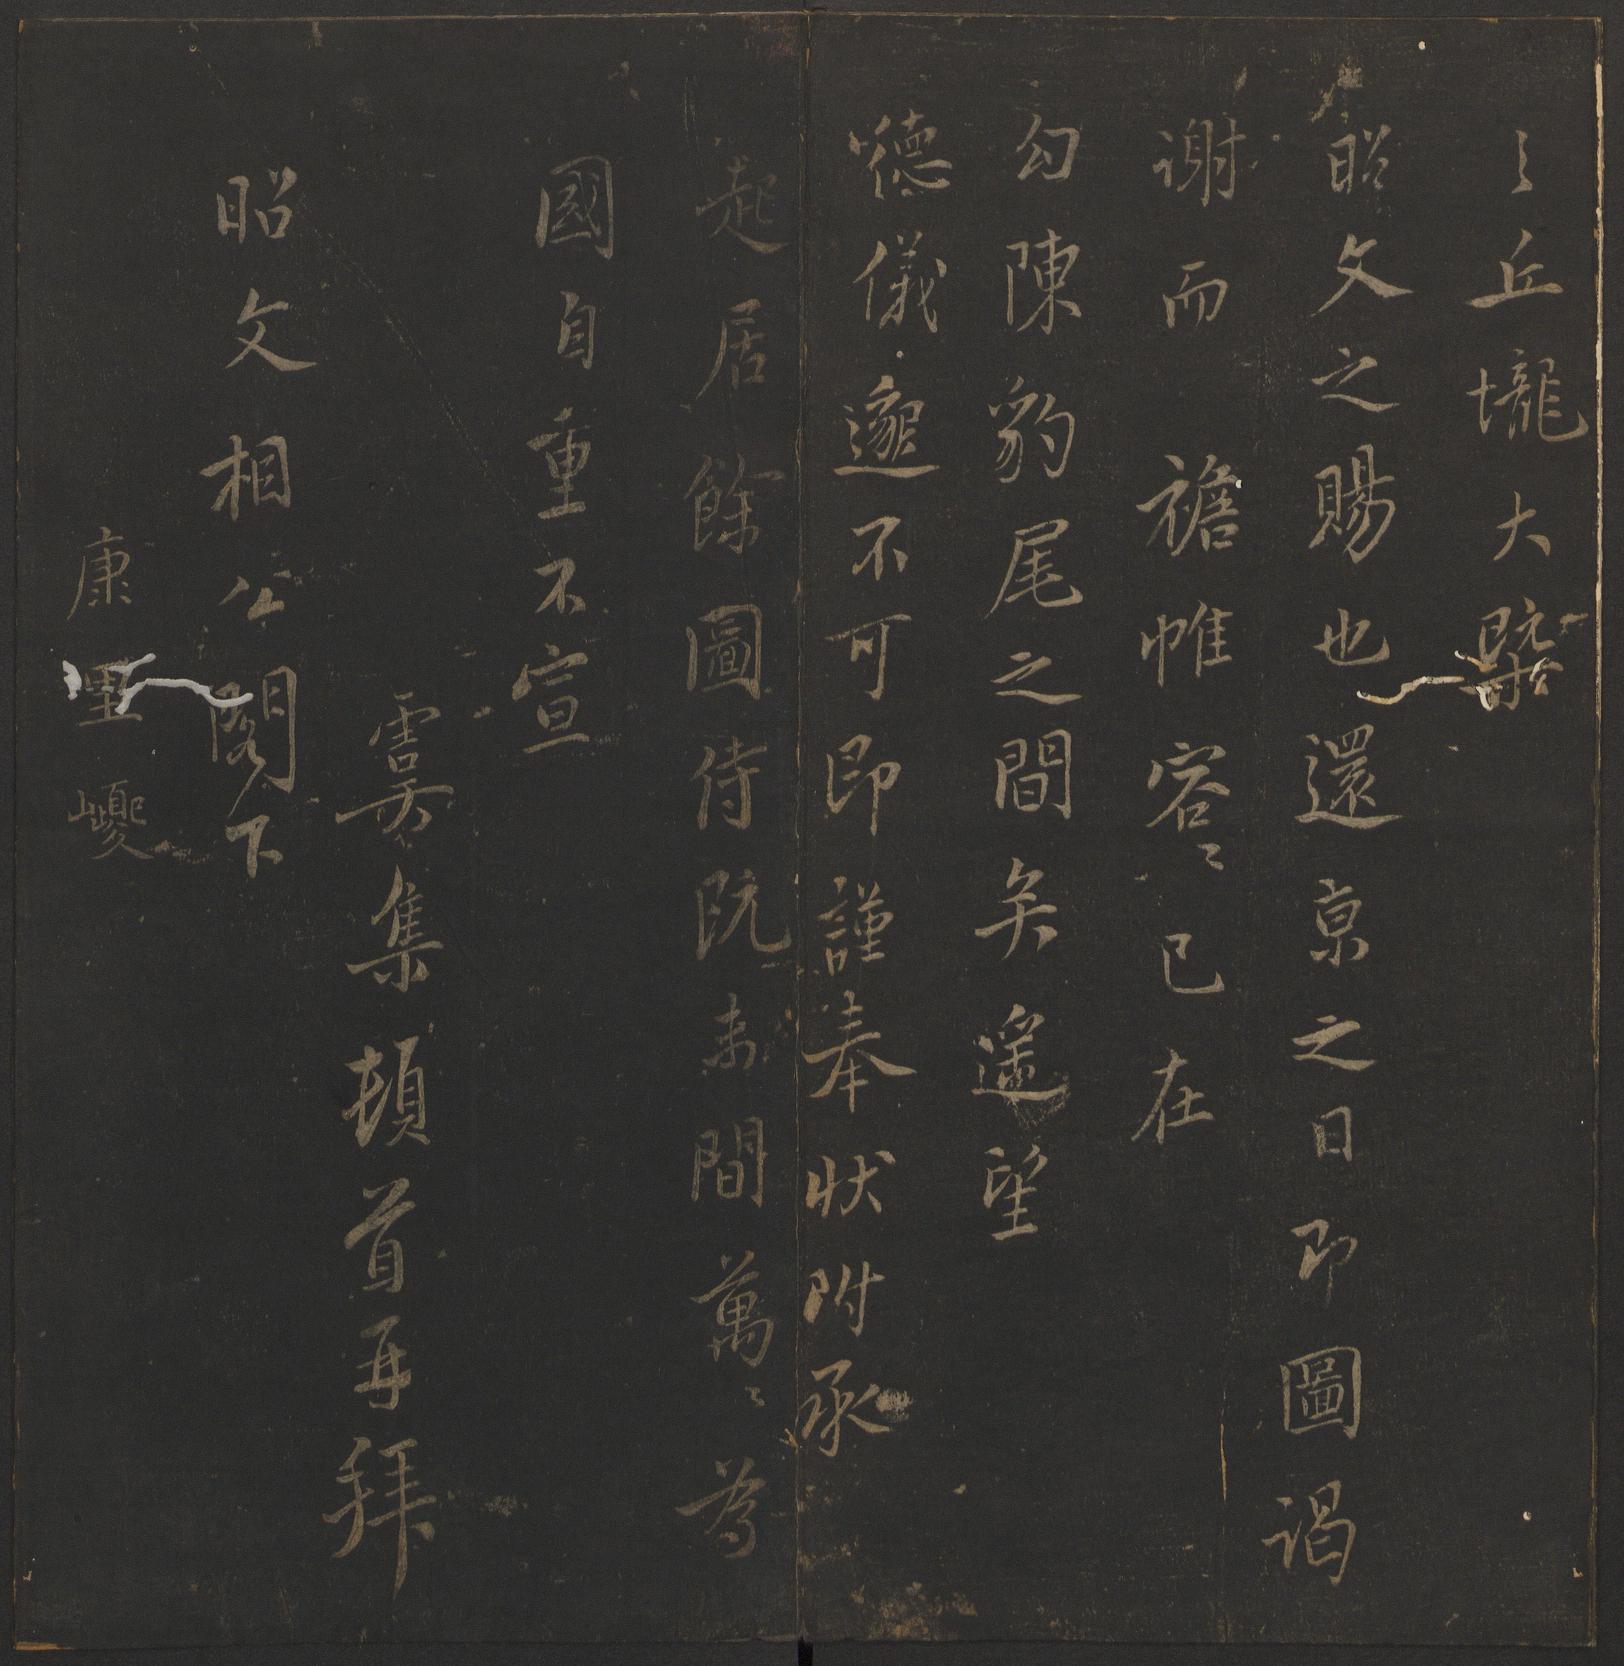 々丘壠大槩
昭文之賜也還京之日即圖謁
謝而襜帷容々已在
勾陳豹尾之間矣遥望
德儀邈不可即謹奉狀附承
起居餘圖侍既未間萬々為
國自重不宣
虞集頓首再拜
昭文相公閣下
康里巎